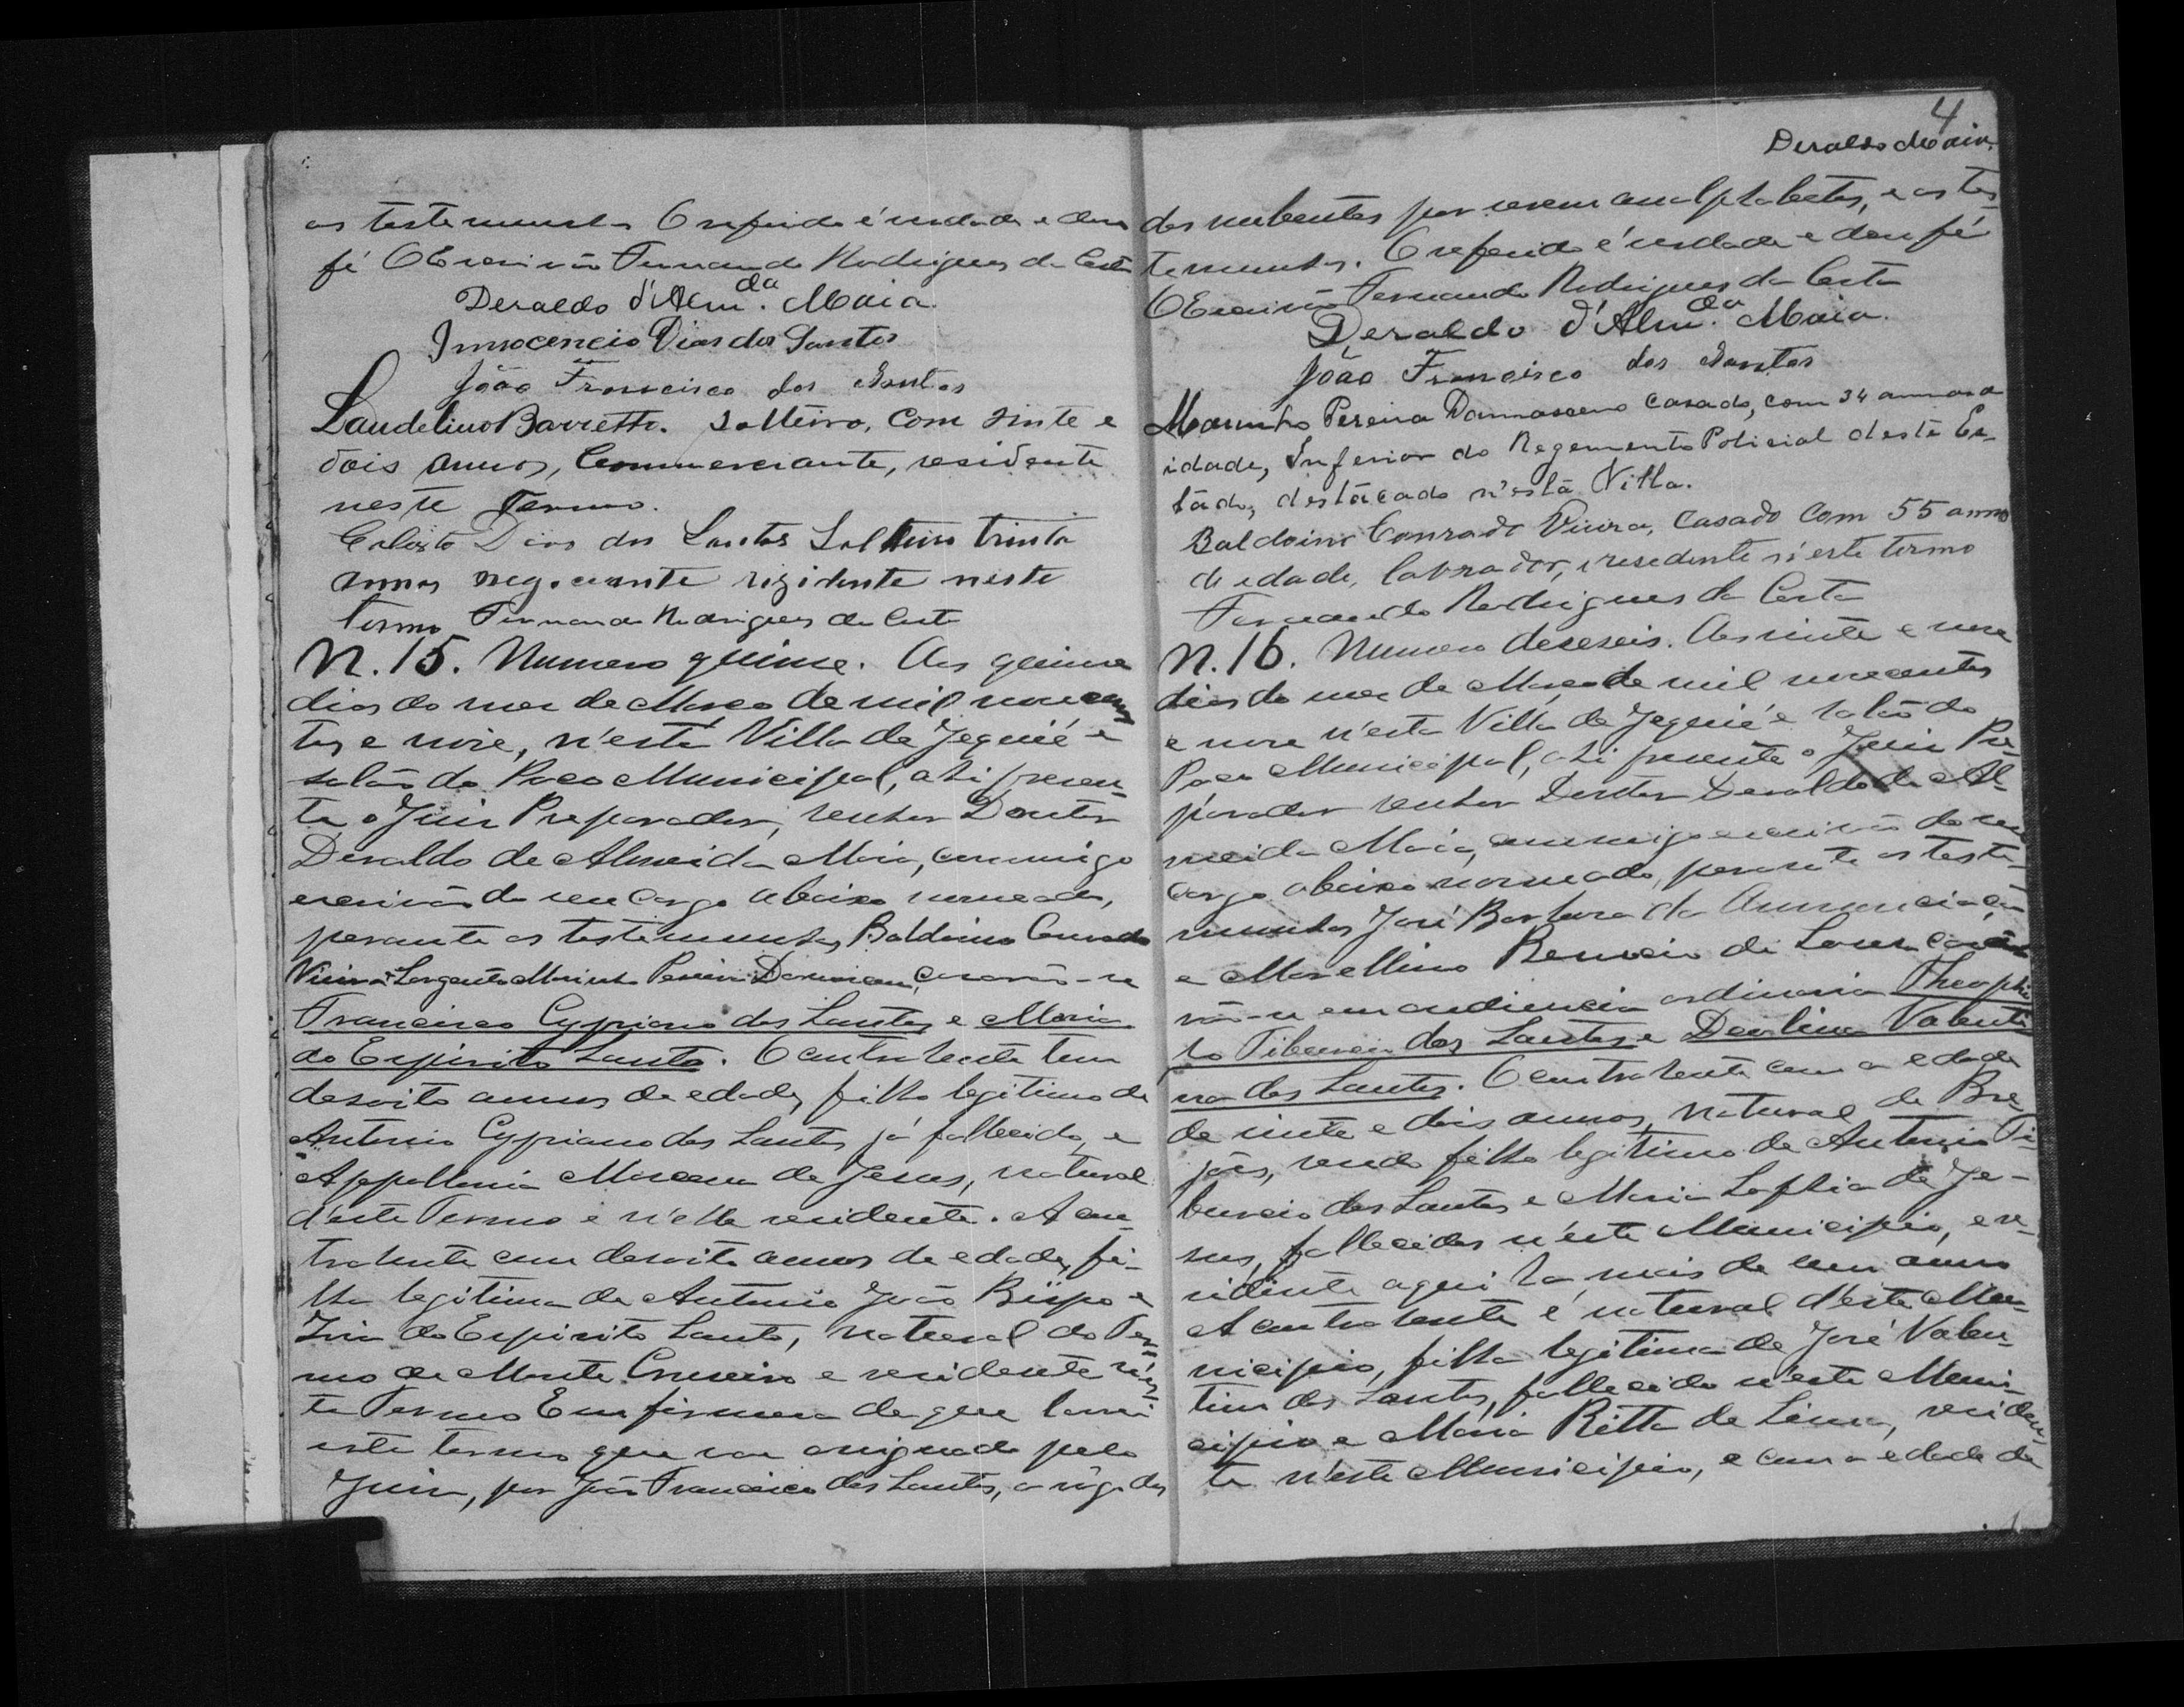 as testemunhas O referido é verdade e dou
fé O Escrivão Fernando Rodrigues da Costa
Deraldo d'Alm.da Maia
Innocencio Dias dos Santos
João Francisco dos Santos
Laudelino Barretto. solteiro, com vinte e
dois annos, Commerciante, residente
neste Termo.
Calixto Dias dos Santos Solteiro trinta
annos negociante rizidente neste
termo Fernando Rodrigues da Costa
N. 15. Numero quinse. Aos quinse
dias do mez de Março de mil novecen
tos e nove, n'esta Villa de Jequié e
salão do Paço Municipal, ahi presen-
te o Juiz Preparador, senhor Doutor
Deraldo de Almeida Maia, commigo
escrivão do seu cargo abaixo nomeado,
perante as testemunhas Baldoino Conrado
Vieira Sargento Marinho Pereira Damasceno, casarão-se
Francisco Cypriano dos Santos e Maria
do Espirito Santo. O contrahente tem
desoito annos de edade, filho legitimo de
Antonio Cypriano dos Santos já fallecido, e
Appollonia Maria de Jesus, natural
d'este Termo e n'elle residente. A con-
trahente com desoito annos de edade, fi-
lha legitima de Antonio João Bispo e
do Espirito Santo, natural do Ter-
mo de Monte Cruzeiro e residente n'es-
te Termo Em firmesa do que lavrei
este termo que vae assignado pelo
Juiz, por João Francisco dos Santos, a rogo dos
4
Deraldo Maia.
dos nubentes por serem analphabetos, e as tes-
temunhas. O referido é verdade e dou fé
O Escrivão Fernando Rodrigues da Costa
Deraldo d'Alm.da Maia.
João Francisco dos Santos
Marinho Pereira Damasceno Casado, com 34 annos d
idade, Inferior do Regemento Policial deste Es-
tado, destácado n'está Villa.
Baldoino Conrado Vieira, Casado Com 55 anno
de edade, labrador, resedente n'este termo
Fernando Rodrigues da Costa
N. 16. Numero deseseis. Aos vinte e nove
dias do mez de Março de mil novecentos
e nove n'esta Villa de Jequié e salão do
Paço Municipal, ahi presente o Juiz Pre-
parador senhor Doutor Deraldo de Al-
meida Maia, commigo escrivão do seu
cargo abaixo nomeado, perante as teste-
munhas José Barbosa da Annunciação
e Marcellino de Sousa casa
rão-se em audiencia ordinaria Theophi
lo Tiburcio dos Santos e Deolina Valenti
na dos Santos. O contrahente com a edade
de vinte e dois annos, natural de Bre-
jões, sendo filho legitimo de Antonio Ti-
burcio dos Santos e Maria Sophia de Je-
sus, fallecidos n'este Municipio, e re-
sidente aqui ha mais de um anno
A contrahente é natural d'este Mu-
nicipio, filha legitima de José Valen-
tim dos Santos, fallecido n'este Muni-
cipio e Maria Ritta de Lima, residen-
te n'este Municipio, e com a edade de